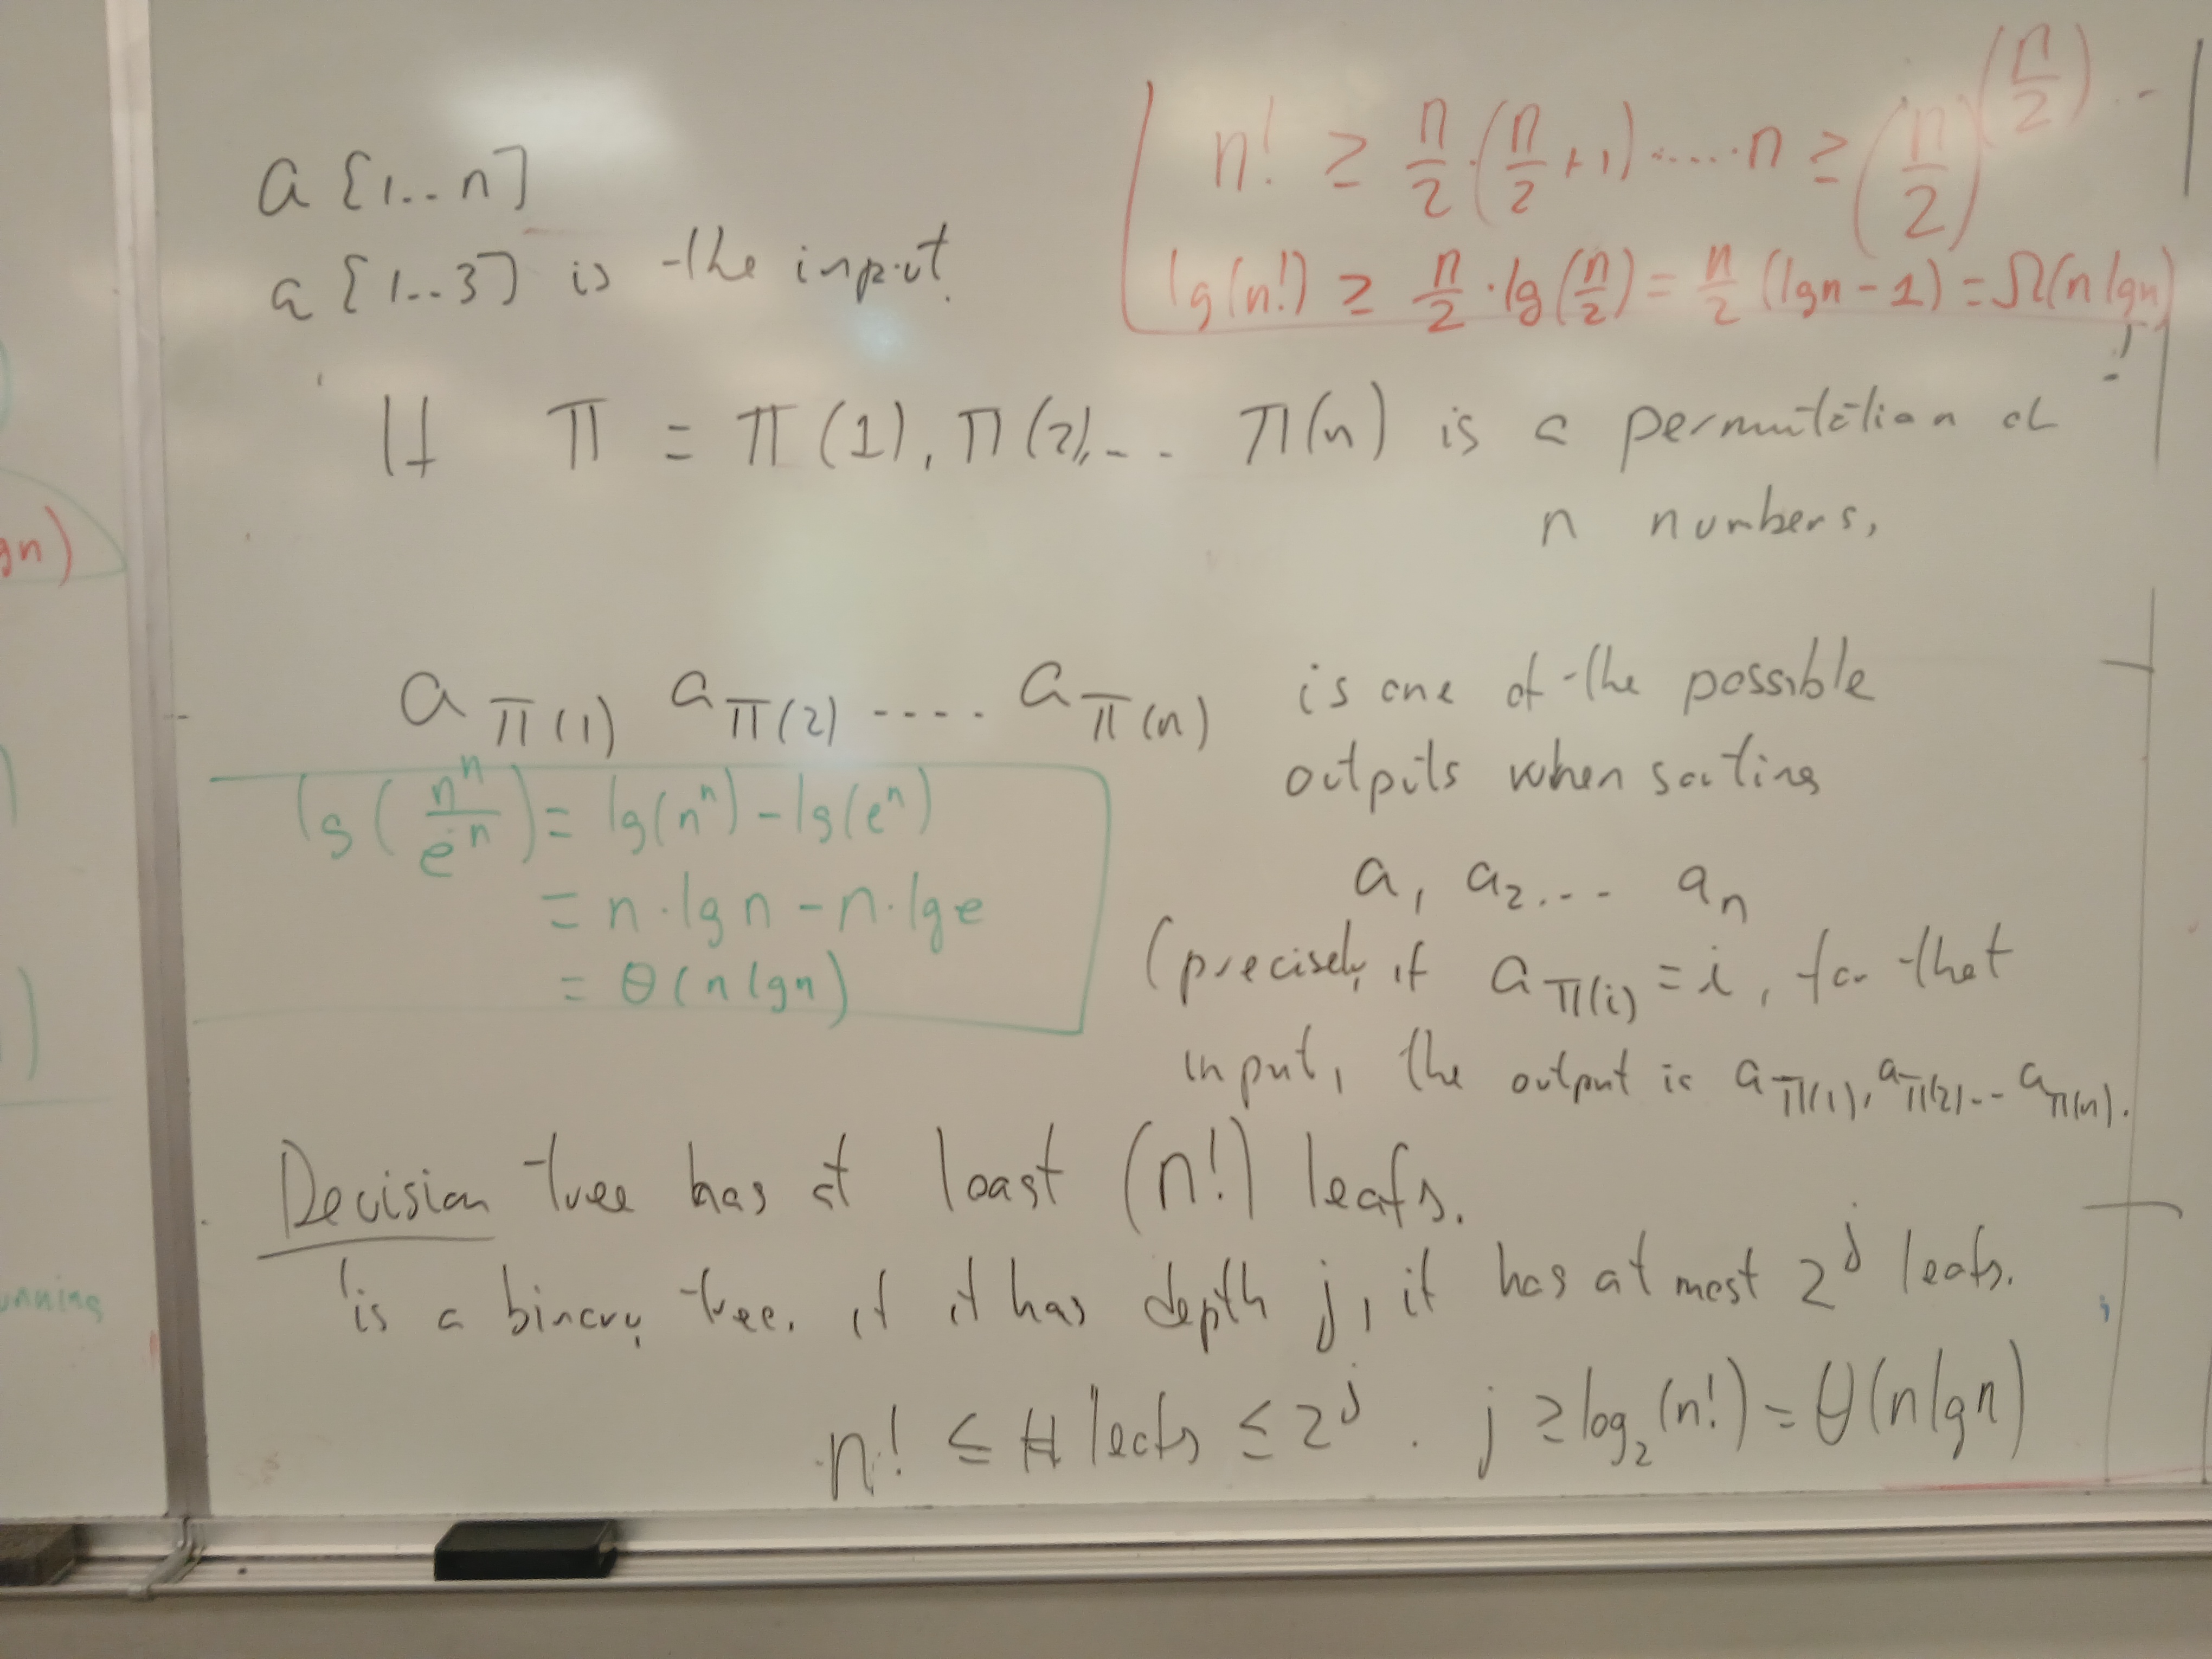 a[1..n]
a[1..3] is the input.
n! ≥ n/2 · (n/2 + 1) ..... n ≥ (n/2)^(n/2) ..
lg(n!) ≥ n/2 · lg(n/2) = n/2 (lgn - 1) = Ω(n lgn)
!
If π = π(1), π(2), .. π(n) is a permutation of
n numbers,
a_π(1) a_π(2) .... a_π(n) is one of the possible
outputs when sorting
a_1 a_2 ... a_n
(precisely, if a_π(i) = i, for that
input, the output is a_π(1), a_π(2) .. a_π(n).
lg(n^n / e^n) = lg(n^n) - lg(e^n)
= n·lgn - n·lge
= θ(n lgn)
Decision tree has at least (n!) leafs.
is a binary tree. if it has depth j, it has at most 2^j leafs.
n! ≤ # leafs ≤ 2^j. j ≥ log_2(n!) = θ(n lgn)
gn)